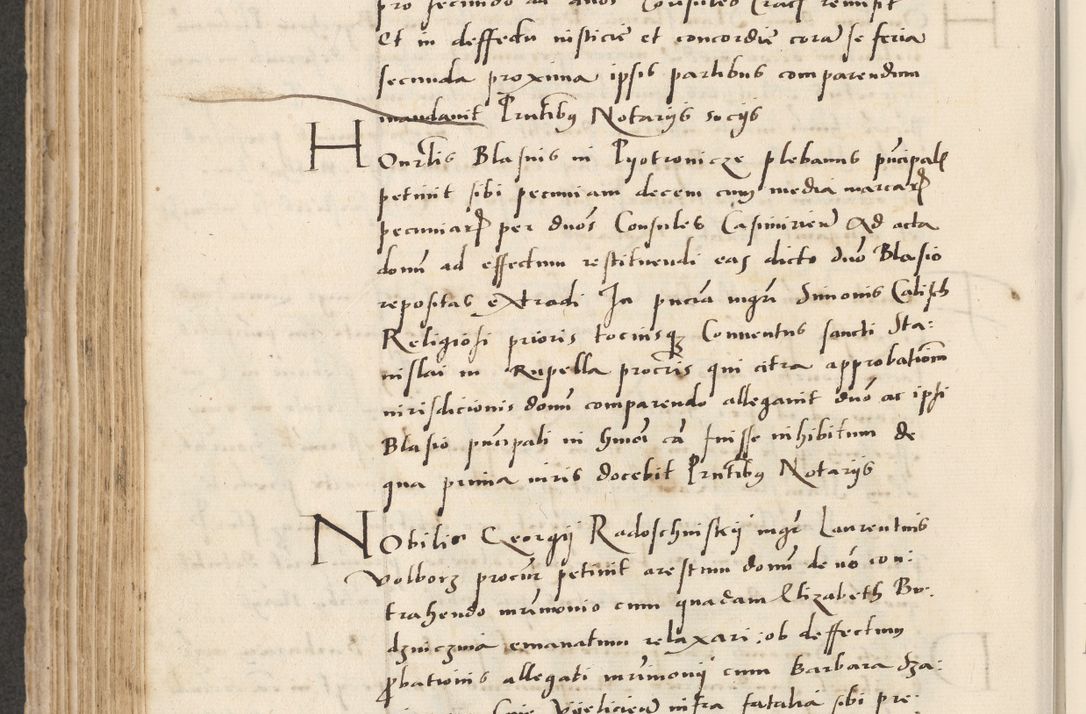 Et in deffectu iusticie et concordie cora se feria
secunda proxima ipsis partibus comparendum
mandavit Prntibus Notarijs socijs
Honrlis Blasius in Pyotronicze plebanus pncipalis
petiuit sibi pecuniam decem cum media marcar
pecuniar per duos Consules Casimirien Ad acta
domi ad effectum restituendi eas dicto duo Blasio
repositas extradi In pncia mgri Simonis Calisch
Religiosi prioris tociusq Conuentus sancti Sta:
nislai in Rupella procris qui citra approbationem
iurisdicionis domi comparendo allegauit duo ac ipsi
Blasio pncipali in hmoi ca fuisse inhibitum de
qua prima iuris docebit Prntibus Notarijs
Nobilis Georgij Radoschinskij mgr Laurentius
Volborz procur petiuit arestum domi de no con:
trahendo mrimonio cum quadam Elizabeth Bv:
dzniczina emanatum relaxari: ob deffectum
probationis allegati mrimonij cum Barbara Sza:
infra fatalia sibi pre: